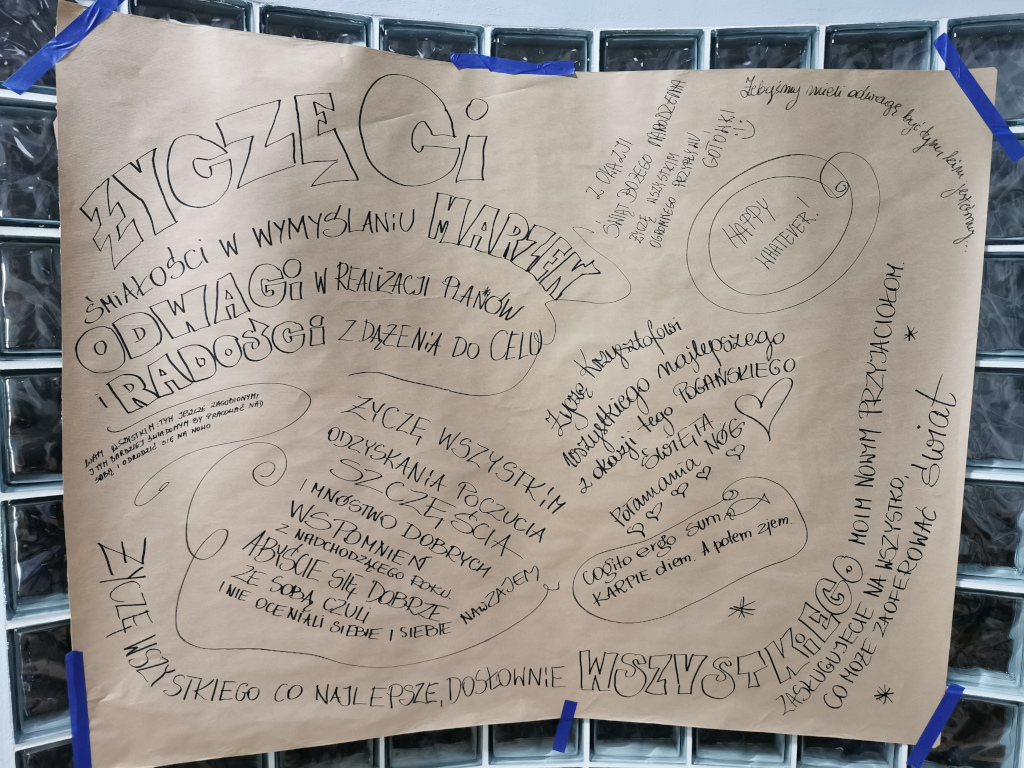 ŻYCZĘ CI
ŚMIAŁOŚCI W WYMYŚLANIU MARZEŃ
ODWAGI W REALIZACJI PLANÓW
I RADOŚCI Z DĄŻENIA DO CELU
WAM WSZYSTKIM TYM JESZCZE ZAGUBIONYM
I TYM BARDZIEJ ŚWIADOMYM BY PRACOWAĆ NAD
SOBĄ I ODRODZIĆ SIĘ NA NOWO
ŻYCZĘ WSZYSTKIM
ODZYSKANIA POCZUCIA
SZCZĘŚCIA
I MNÓSTWO DOBRYCH
WSPOMNIEŃ
Z NADCHODZĄCEGO ROKU.
ABYŚCIE SIĘ DOBRZE
ZE SOBĄ CZULI
I NIE OCENIALI SIEBIE I SIEBIE NAWZAJEM
Z OKAZJI
ŚWIĄT BOŻEGO NARODZENIA
ŻYCZĘ WSZYSTKIM
OGROMNEGO PRZYPŁYWU
GOTÓWKI
Żebyśmy mieli odwagę być tym kim jesteśmy.
HAPPY
WHATEVER!
Życzę Krzysztofowi
wszystkiego najlepszego
z okazji tego POGAŃSKIEGO
ŚWIĘTA
Połamania NÓG
Cogito ergo sum
KARPIE diem. A potem zjem.
ŻYCZĘ WSZYSTKIEGO CO NAJLEPSZE, DOSŁOWNIE WSZYSTKIEGO MOIM NOWYM PRZYJACIOŁOM.
ZASŁUGUJECIE NA WSZYSTKO,
CO MOŻE ZAOFEROWAĆ ŚWIAT